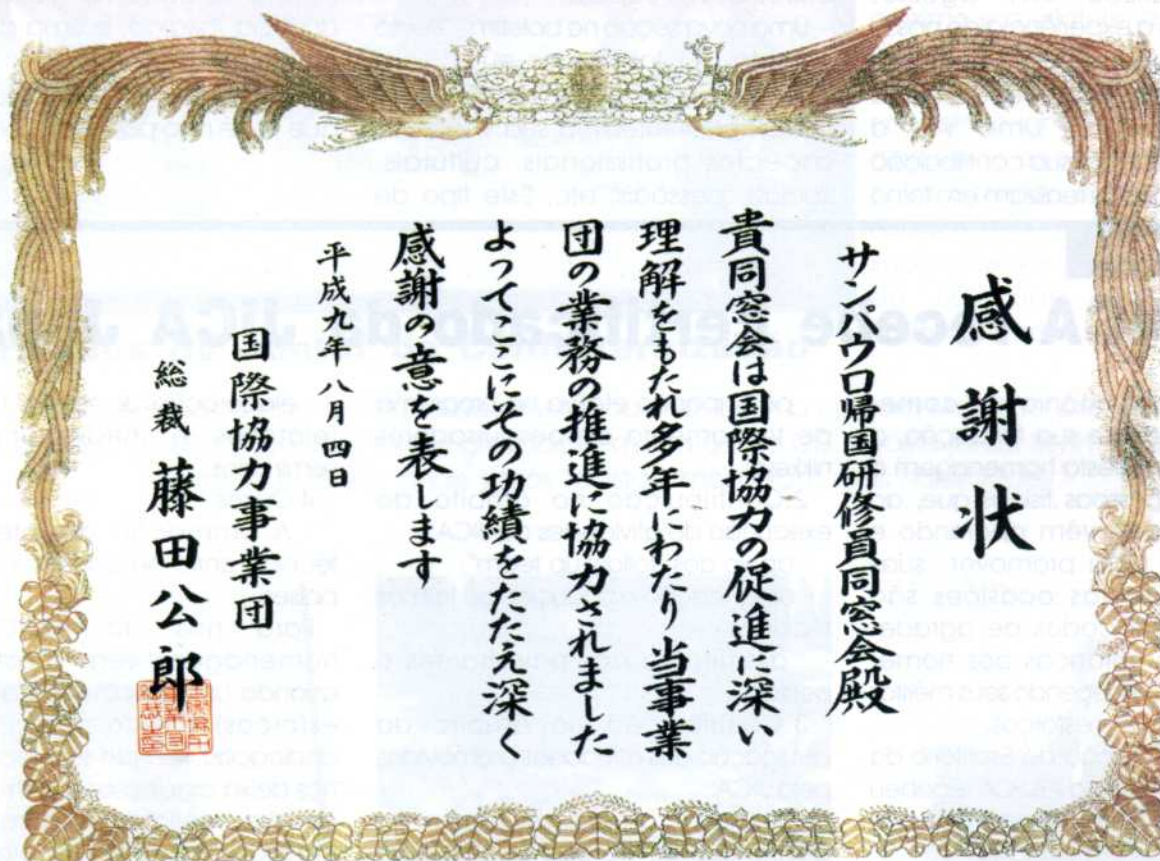 感謝状
サンパウロ帰国研修員同窓会殿
貴同窓会は国際協力の促進に深い
理解をもたれ多年にわたり当事業
団の業務の推進に協力されました
よってここにその功績をたたえ深く
感謝の意を表します
平成九年八月四日
国際協力事業団
総裁 藤田公郎